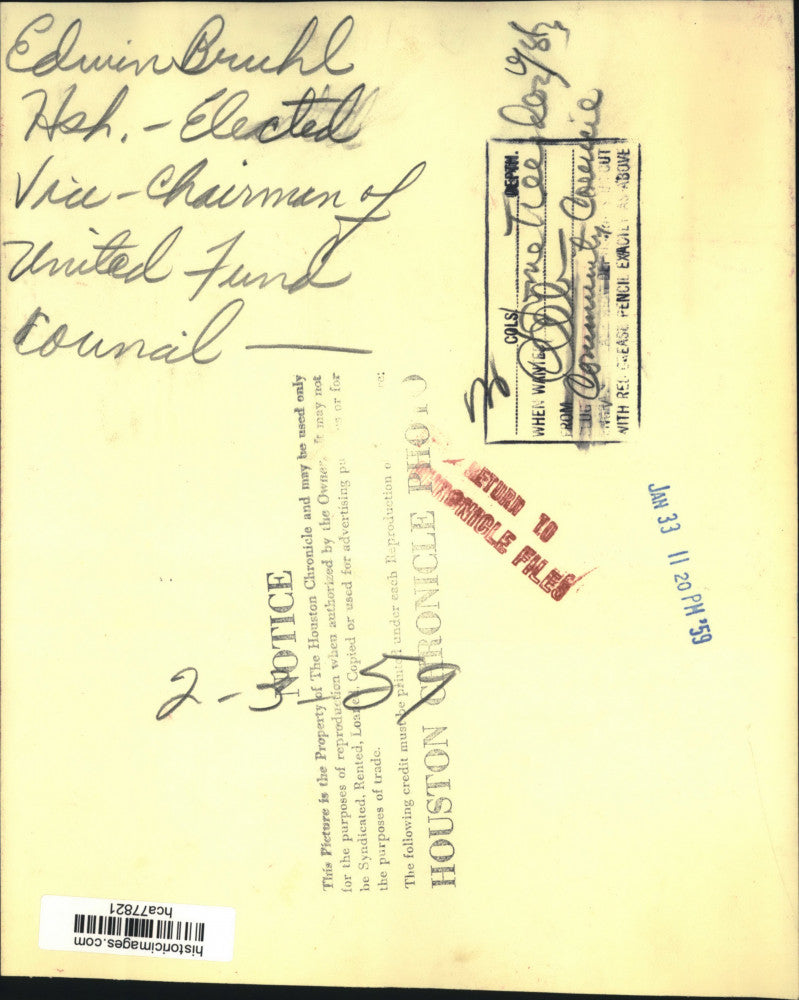 Edwin Bruhl
Hsh. - Elected
Vice-Chairman of
United Fund
Council —
COLS.
WHEN WANTED
FROM
WITH RED GREASE PENCIL EXACTLY AS ABOVE
Community Council
RETURN TO
CHRONICLE FILES
JAN 33 11 20 PM '59
NOTICE
This Picture is the Property of The Houston Chronicle and may be used only
for the purposes of reproduction when authorized by the Owner. It may not
be Syndicated, Rented, Loaned, Copied or used for advertising or for
the purposes of trade.
The following credit must be printed under each Reproduction
HOUSTON CHRONICLE PHOTO
2-3-59
historicimages.com
hca77821